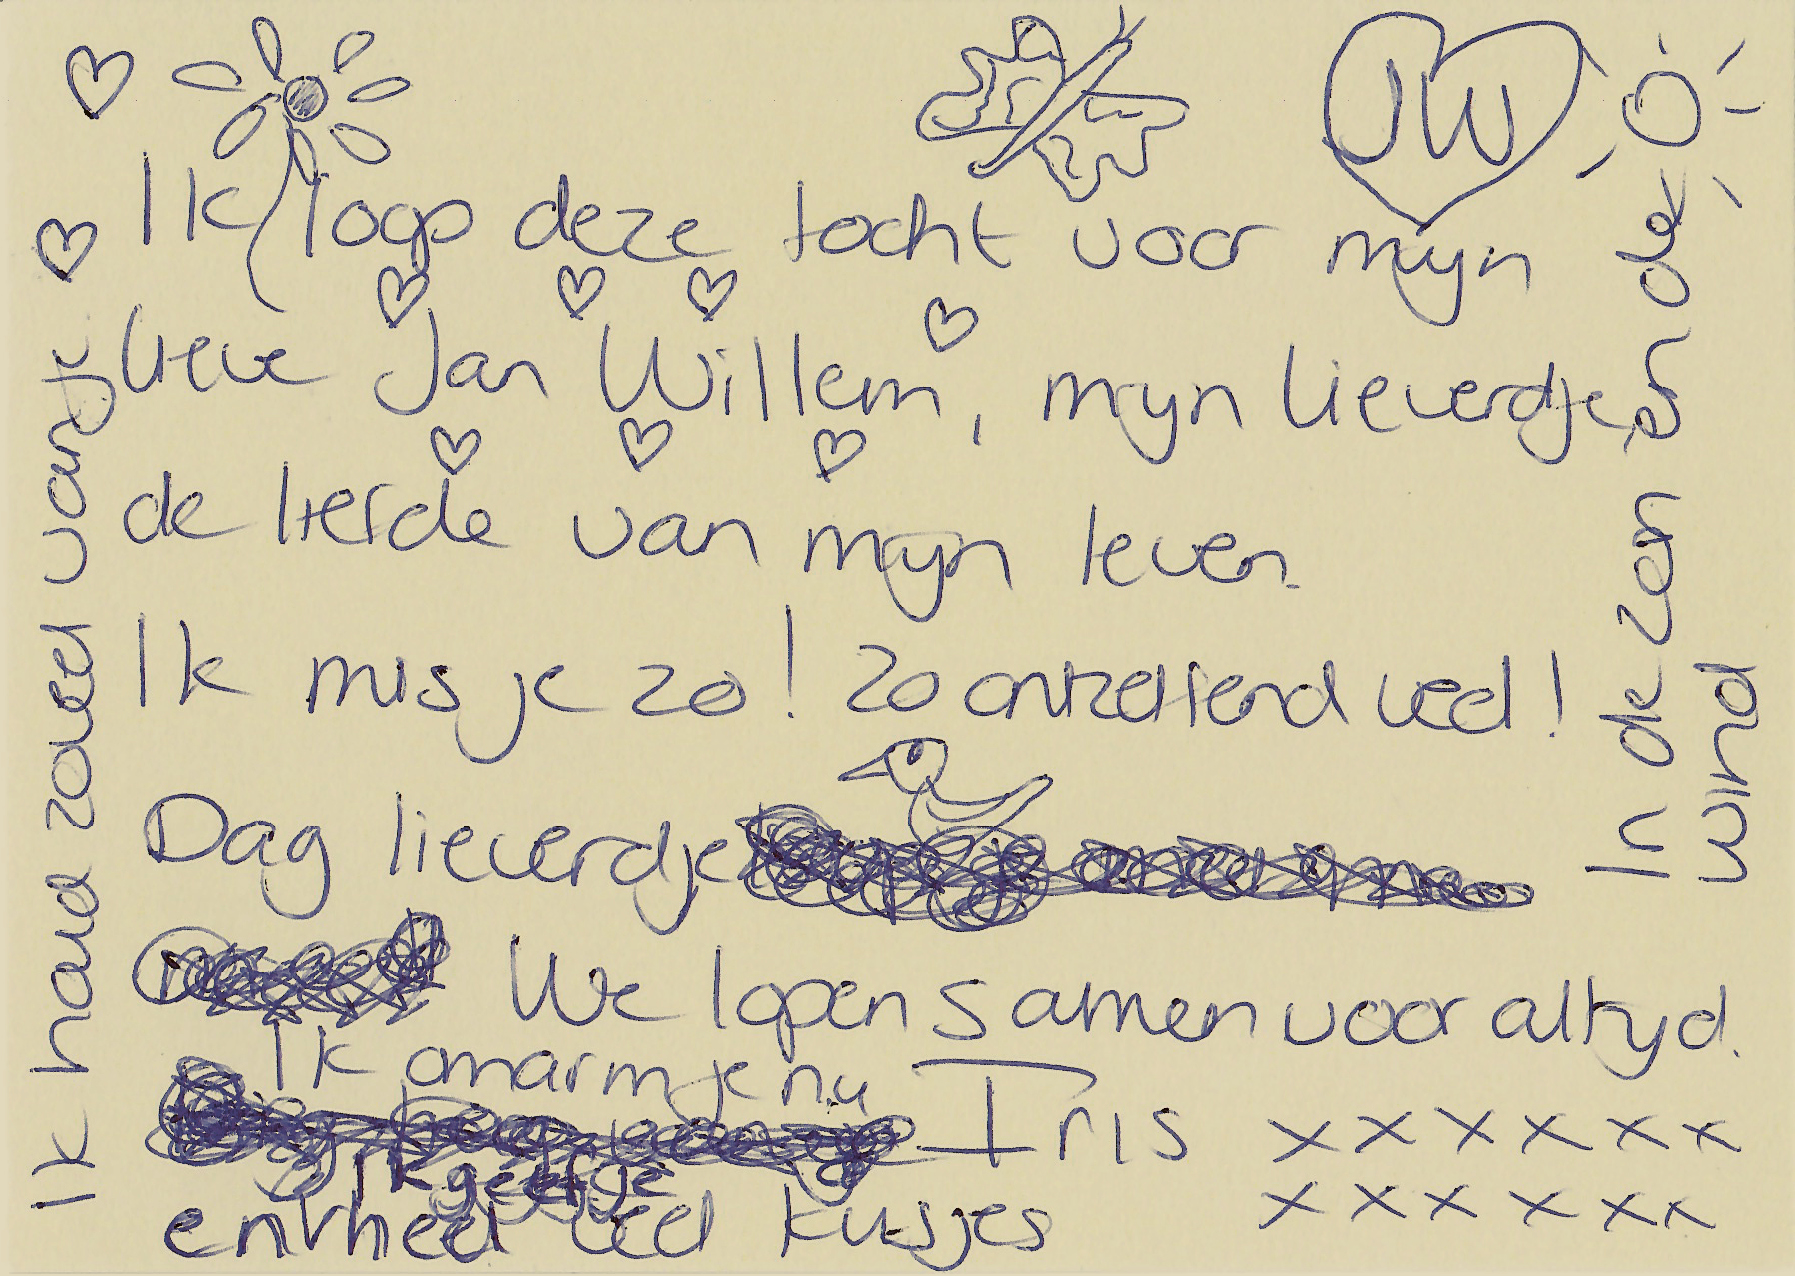 JW
Ik loop deze tocht voor mijn
lieve Jan Willem, mijn lieverdje,
de liefde van mijn leven.
Ik mis je zo! Zo ontzettend veel!
Dag lieverdje
We lopen samen voor altijd.
Ik omarm je nu
Iris xxxxxx
xxxxxx
Ik geef je
en heel veel kusjes
Ik houd zoveel van je
In de zon en de
wind